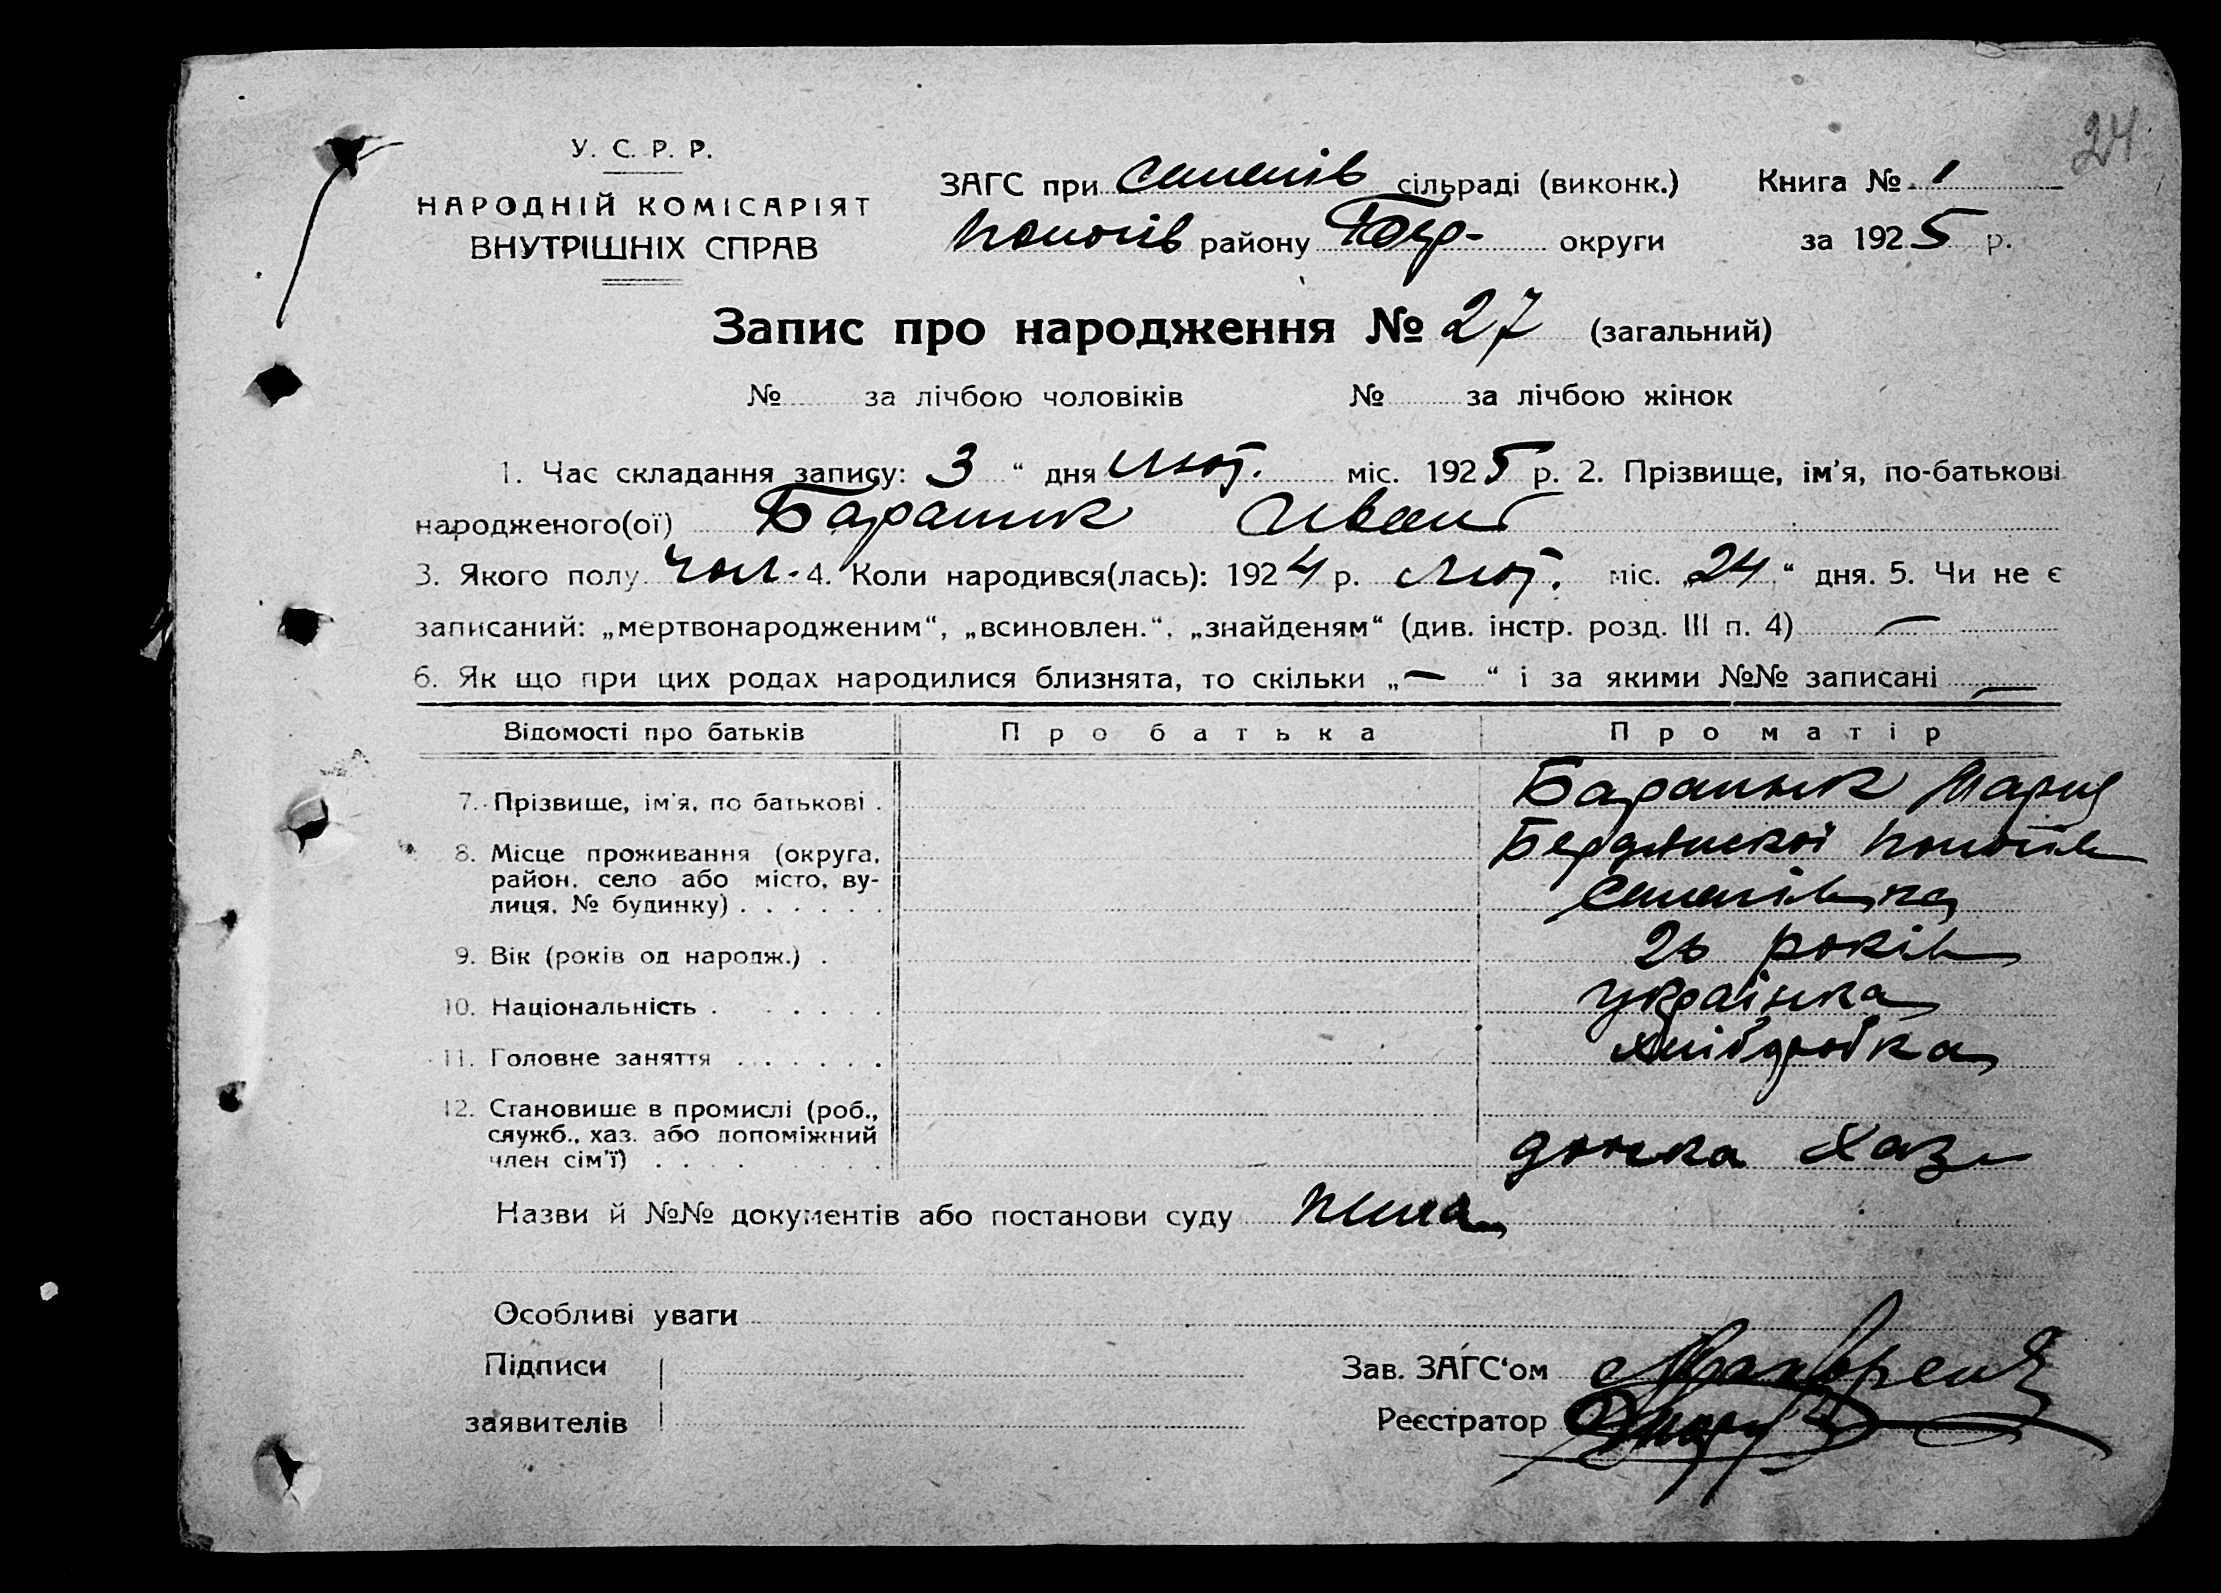 24
У. С. Р. Р.
НАРОДНІЙ КОМІСАРІЯТ
ВНУТРІШНІХ СПРАВ
ЗАГС при Семенів сільраді (виконк.) Книга № 1
Пологів району Бер- округи за 1925 р.
Запис про народження № 27 (загальний)
№ за лічбою чоловіків № за лічбою жінок
1. Час складання запису: 3 “ дня лют. міс. 1925 р. 2. Прізвище, ім'я, по-батькові
народженого(ої) Баранник Иван
3. Якого полу чол. 4. Коли народився(лась): 1924 р. лют. міс. „24“ дня. 5. Чи не є
записаний: „мертвонародженим“, „всиновлен.“, „знайденям“ (див. інстр. розд. III п. 4) —
6. Як що при цих родах народилися близнята, то скільки „—“ і за якими №№ записані —
Відомості про батьків Про батька Про матір
7. Прізвище, ім'я, по батькові . Баранник Мария
8. Місце проживання (округа, Бердянської Пологів
район, село або місто, ву-
лиця, № будинку) . . . . . . Семенівка
9. Вік (років од народж.) . років
10. Національність . . . . . . українка
11. Головне заняття . . . . . . хліборобка
12. Становище в промислі (роб.,
служб., хаз. або допоміжний
член сім'ї) . . . . дочка хаз
Назви й №№ документів або постанови суду
Особливі уваги
Підписи Зав. ЗАГС‘ом
заявителів Реєстратор